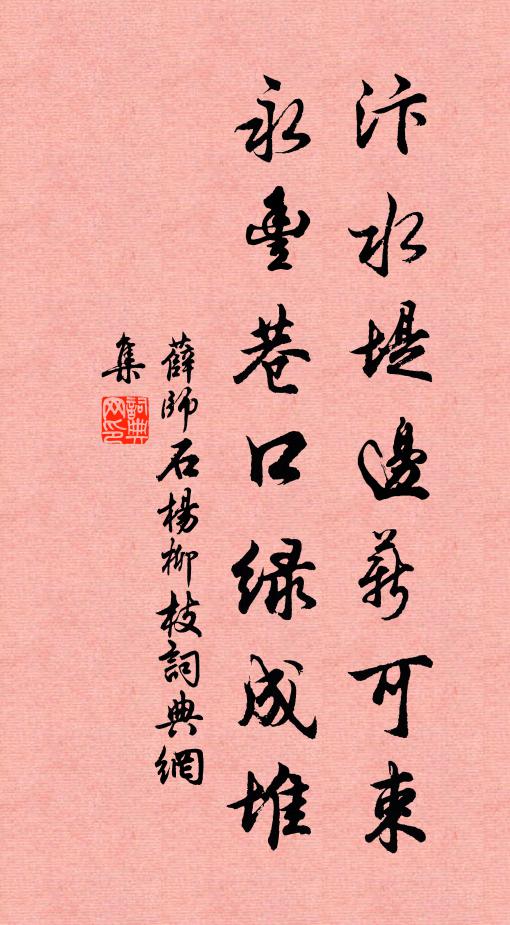 汴水堤邊薪可束
永豐巷口緑成堆
薛師石楊柳枝詞典網
集
詞典網印